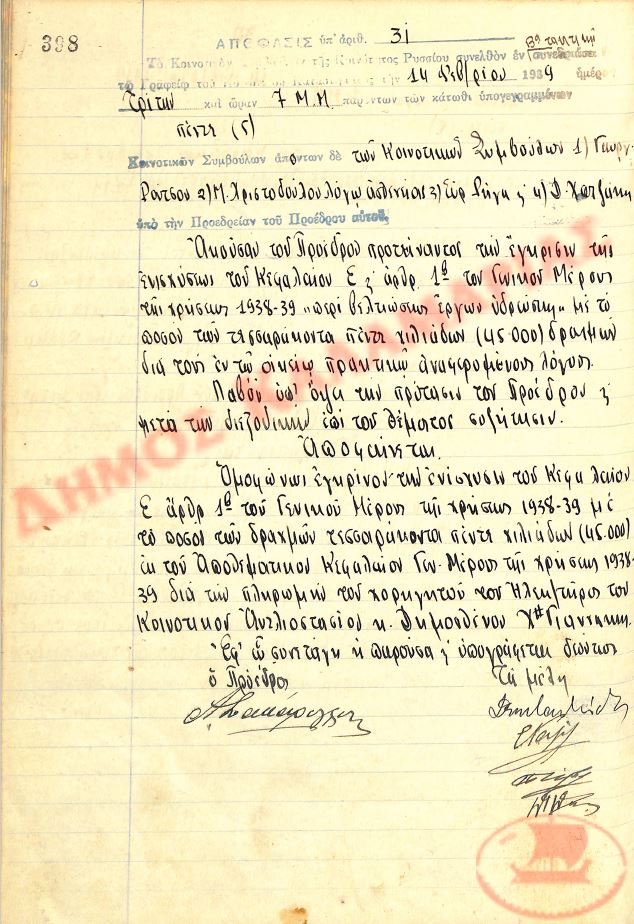 398
ΑΠΟΦΑΣΙΣ ὑπ' ἀριθ. 31
Τὸ Κοινοτικὸν τῆς Κοινότητος Ρυσσίου συνελθὸν ἐν συνεδριάσει
τῷ Γραφείῳ τοῦ τὴν 14 Φεβρ/ρίου 1939 ἡμέραν
Τρίτην καὶ ὥραν 7 Μ.Μ. παρόντων τῶν κάτωθι ὑπογεγραμμένων
πέντε (5)
Κοινοτικῶν Συμβούλων ἀπόντων δὲ τῶν Κοινοτικῶν Συμβούλων 1) Γεωργ.
2) Μ. Χριστοδούλου λόγῳ ἀσθενείας 3) 4) Δ. Χατζάκη
ὑπὸ τὴν Προεδρείαν τοῦ Προέδρου αὐτοῦ.
Ἀκοῦσαν τοῦ Προέδρου προτείναντος τὴν ἔγκρισιν τῆς
ἐνισχύσεως τοῦ Κεφαλαίου Ε ἄρθρ. 1α τοῦ Γενικοῦ Μέρους
τῆς χρήσεως 1938-39 "περὶ βελτιώσεως ἔργων ὑδρεύσεως" μὲ τὸ
ποσὸν τῶν τεσσαράκοντα πέντε χιλιάδων (45.000) δραχμῶν
διὰ τοὺς ἐν τῷ οἰκείῳ πρακτικῷ ἀναφερομένους λόγους.
Λαβὸν ὑπ' ὄψει τὴν πρότασιν τοῦ Προέδρου &
μετὰ τὴν διεξοδικὴν ἐπὶ τοῦ θέματος συζήτησιν.
Ἀποφαίνεται.
Ὁμοφώνως ἐγκρίνον τὴν ἐνίσχυσιν τοῦ Κεφαλαίου
Ε ἄρθρ 1α τοῦ Γενικοῦ Μέρους τῆς χρήσεως 1938-39 μὲ
τὸ ποσὸν τῶν δραχμῶν τεσσαράκοντα πέντε χιλιάδων (45.000)
ἐκ τοῦ Ἀποθεματικοῦ Κεφαλαίου Γεν. Μέρους τῆς χρήσεως 1938-
39 διὰ τὴν πληρωμὴν τοῦ χορηγητοῦ τοῦ Ἠλεκτῆρος τοῦ
Κοινοτικοῦ Ἀντλιοστασίου κ. Δημοσθένου Χ" Γιαννάκη.
Ἐφ' ᾧ συνετάγη ἡ παροῦσα & ὑπογράφεται δεόντως
ὁ Πρόεδρος Τὰ μέλη
ΔΗΜΟΣ ΚΑΛΑΜΑΡΙΑΣ